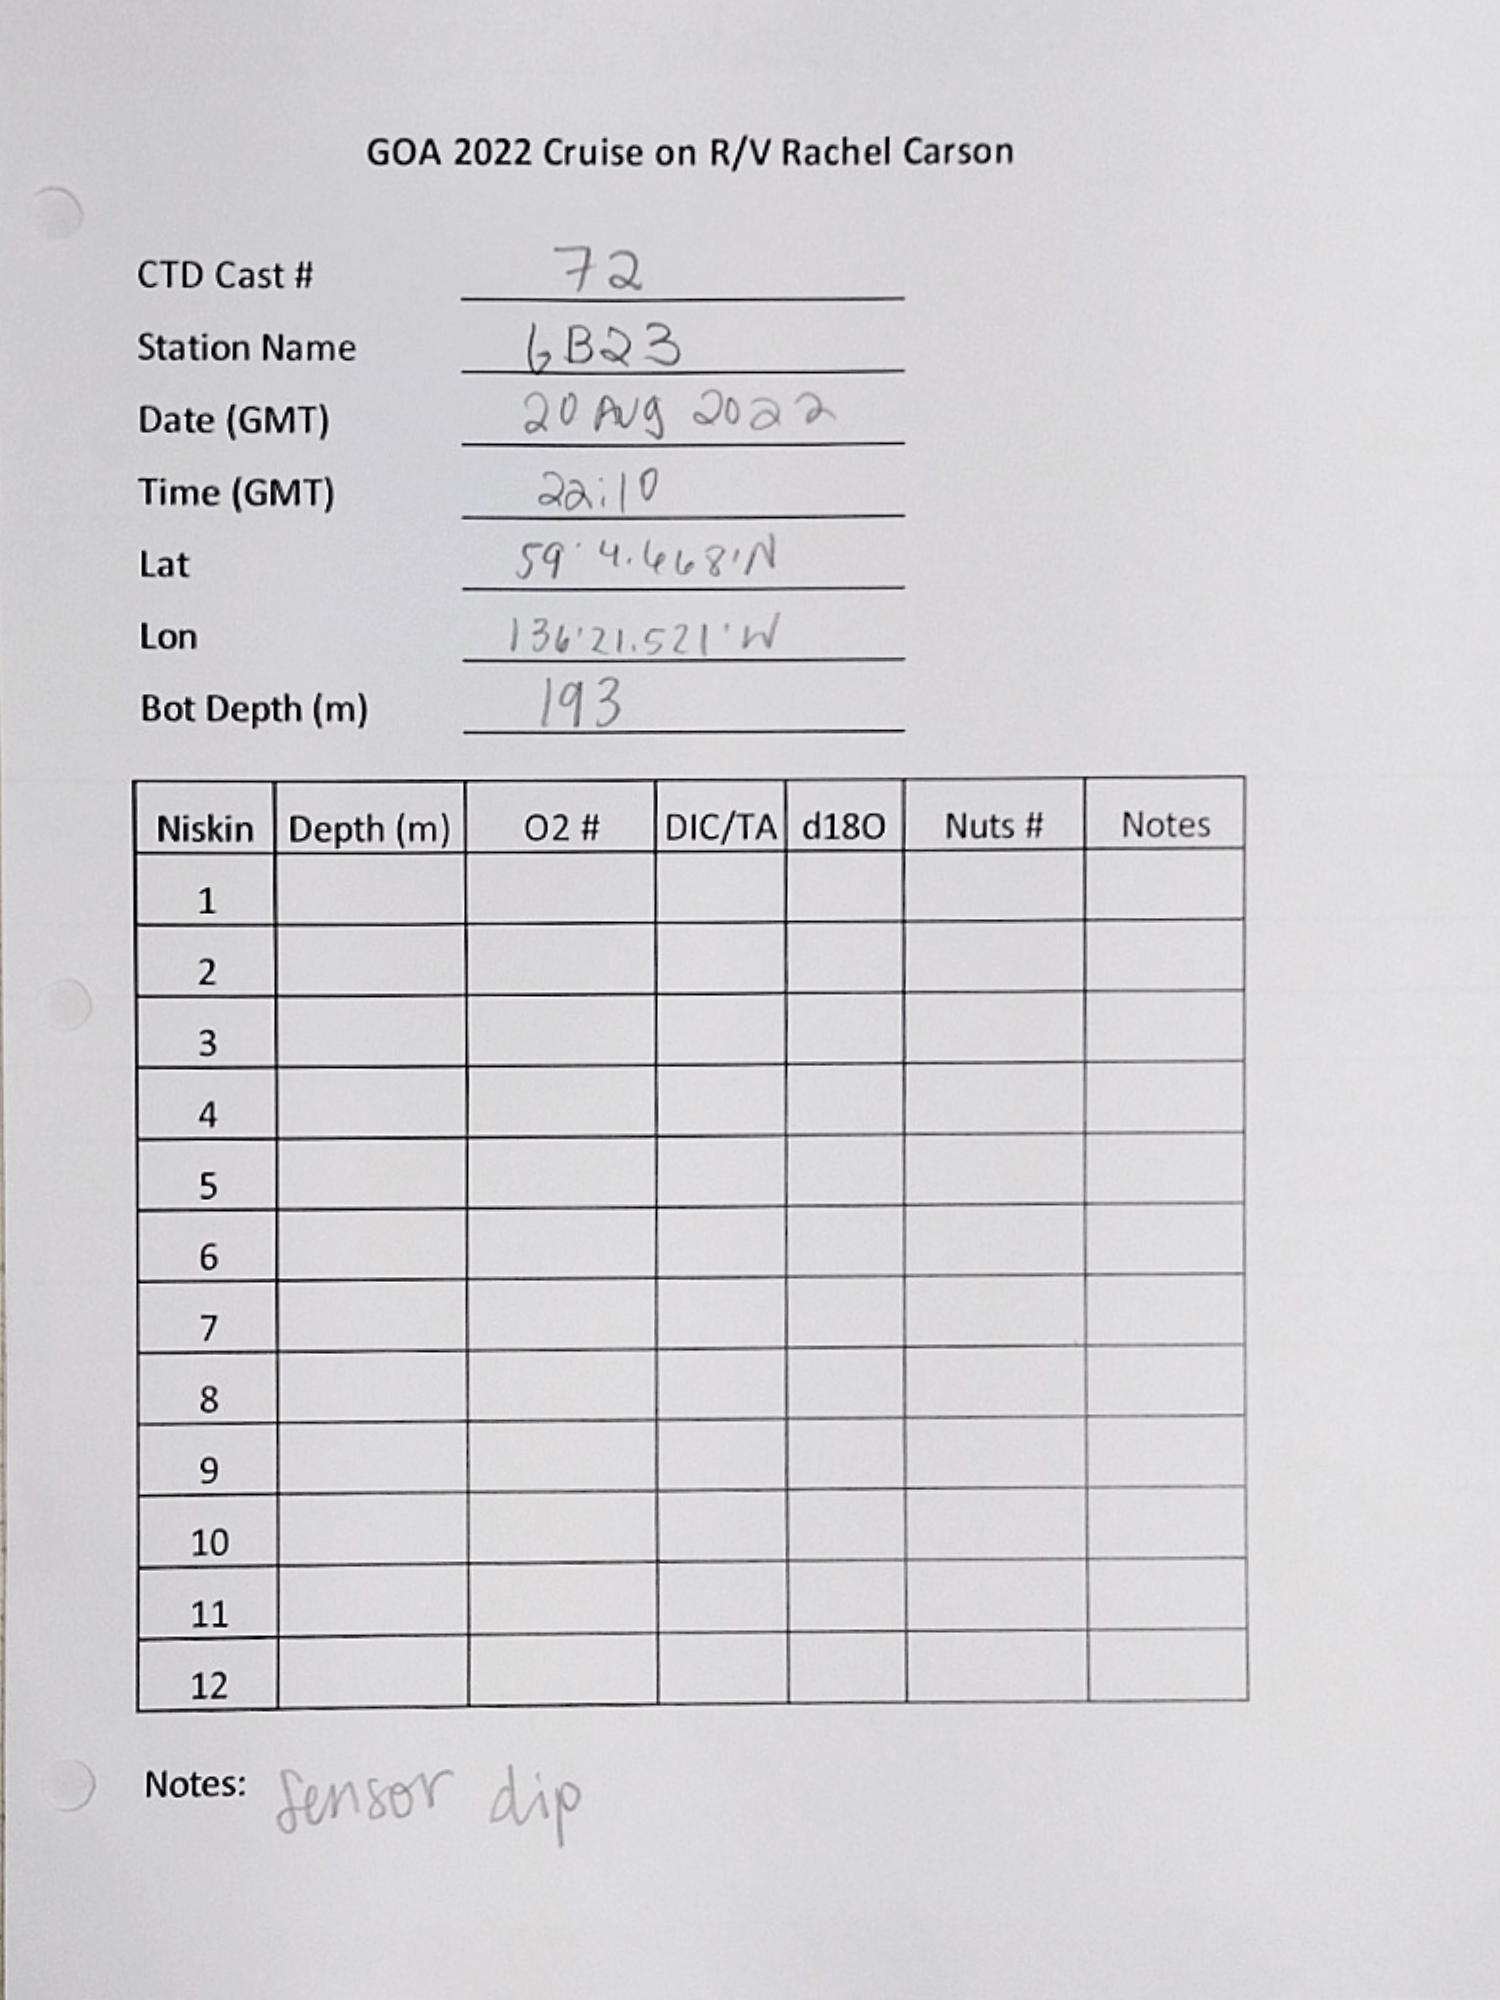 GOA 2022 Cruise on R/V Rachel Carson
CTD Cast # 72
Station Name GB23
Date (GMT) 20 Aug 2022
Time (GMT) 22:10
Lat 59° 4.668'N
Lon 136°21.521'W
Bot Depth (m) 193
Niskin Depth (m) O2 # DIC/TA d18O Nuts # Notes
1
2
3
4
5
6
7
8
9
10
11
12
Notes: Sensor dip